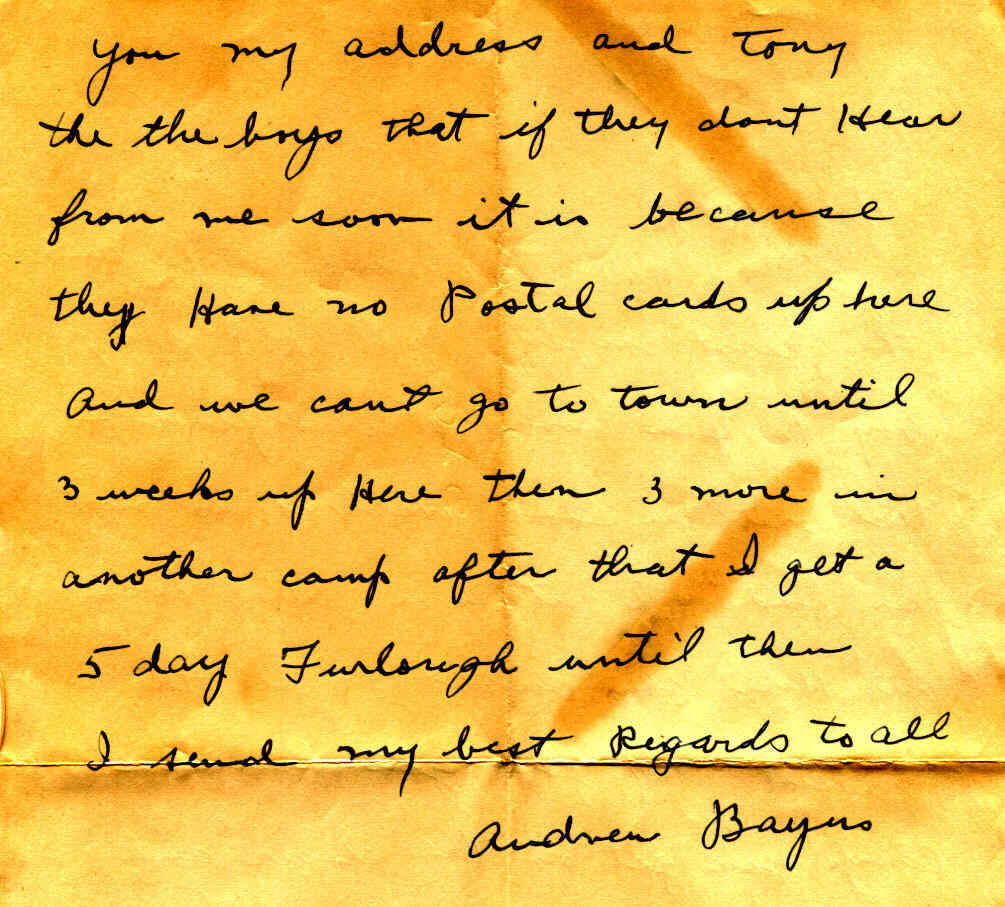 you my address and Tony
the the boys that if they dont Hear
from me soon it is because
they Have no Postal cards up here
And we cant go to town until
3 weeks up Here then 3 more in
another camp after that I get a
5 day Furlough until then
I send my best Regards to all
Andrew Bayus